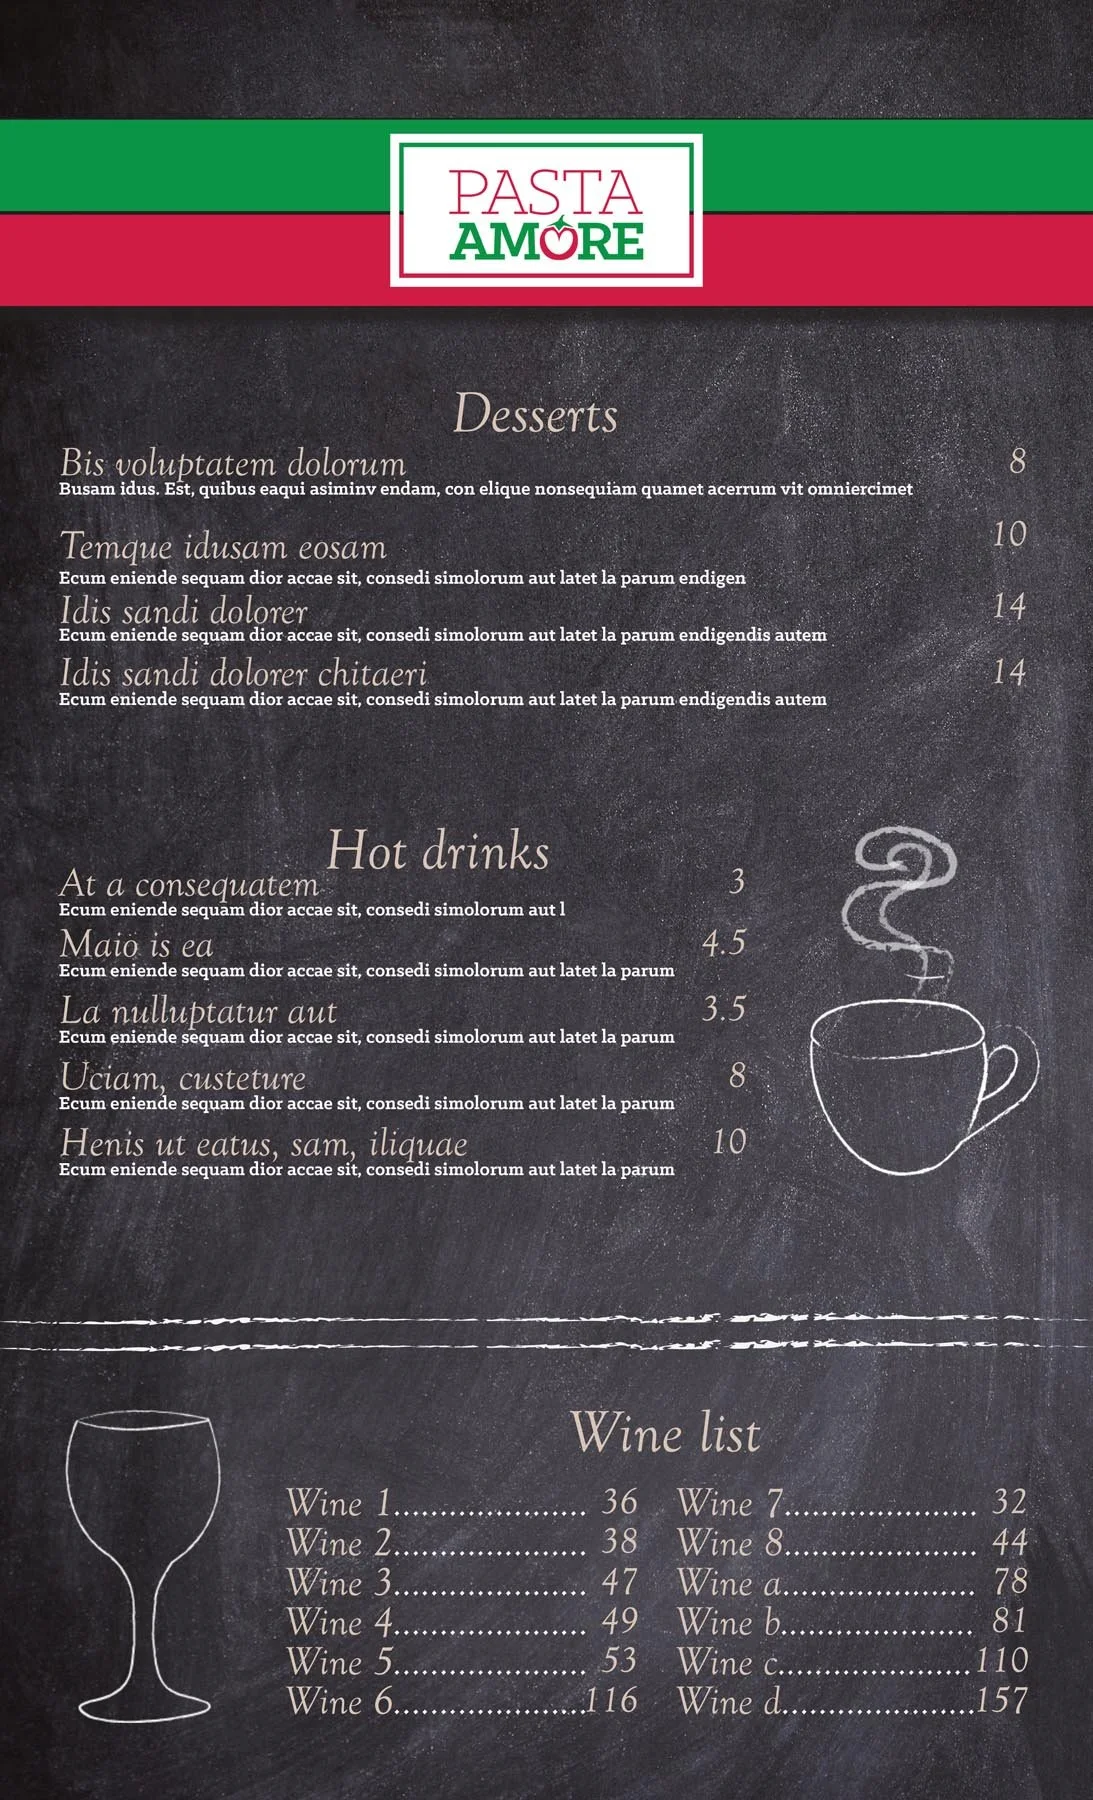 PASTA
AMORE
Desserts
Bis voluptatem dolorum 8
Busam idus. Est, quibus eaqui asiminv endam, con elique nonsequiam quamet acerrum vit omniercimet
Temque idusam eosam 10
Ecum eniende sequam dior accae sit, consedi simolorum aut latet la parum endigen
Idis sandi dolorer 14
Ecum eniende sequam dior accae sit, consedi simolorum aut latet la parum endigendis autem
Idis sandi dolorer chitaeri 14
Ecum eniende sequam dior accae sit, consedi simolorum aut latet la parum endigendis autem
Hot drinks
At a consequatem 3
Ecum eniende sequam dior accae sit, consedi simolorum aut l
Maio is ea 4.5
Ecum eniende sequam dior accae sit, consedi simolorum aut latet la parum
La nulluptatur aut 3.5
Ecum eniende sequam dior accae sit, consedi simolorum aut latet la parum
Uciam, custeture 8
Ecum eniende sequam dior accae sit, consedi simolorum aut latet la parum
Henis ut eatus, sam, iliquae 10
Ecum eniende sequam dior accae sit, consedi simolorum aut latet la parum
Wine list
Wine 1..................... 36
Wine 2..................... 38
Wine 3..................... 47
Wine 4..................... 49
Wine 5..................... 53
Wine 6.....................116
Wine 7..................... 32
Wine 8..................... 44
Wine a..................... 78
Wine b..................... 81
Wine c.....................110
Wine d.....................157